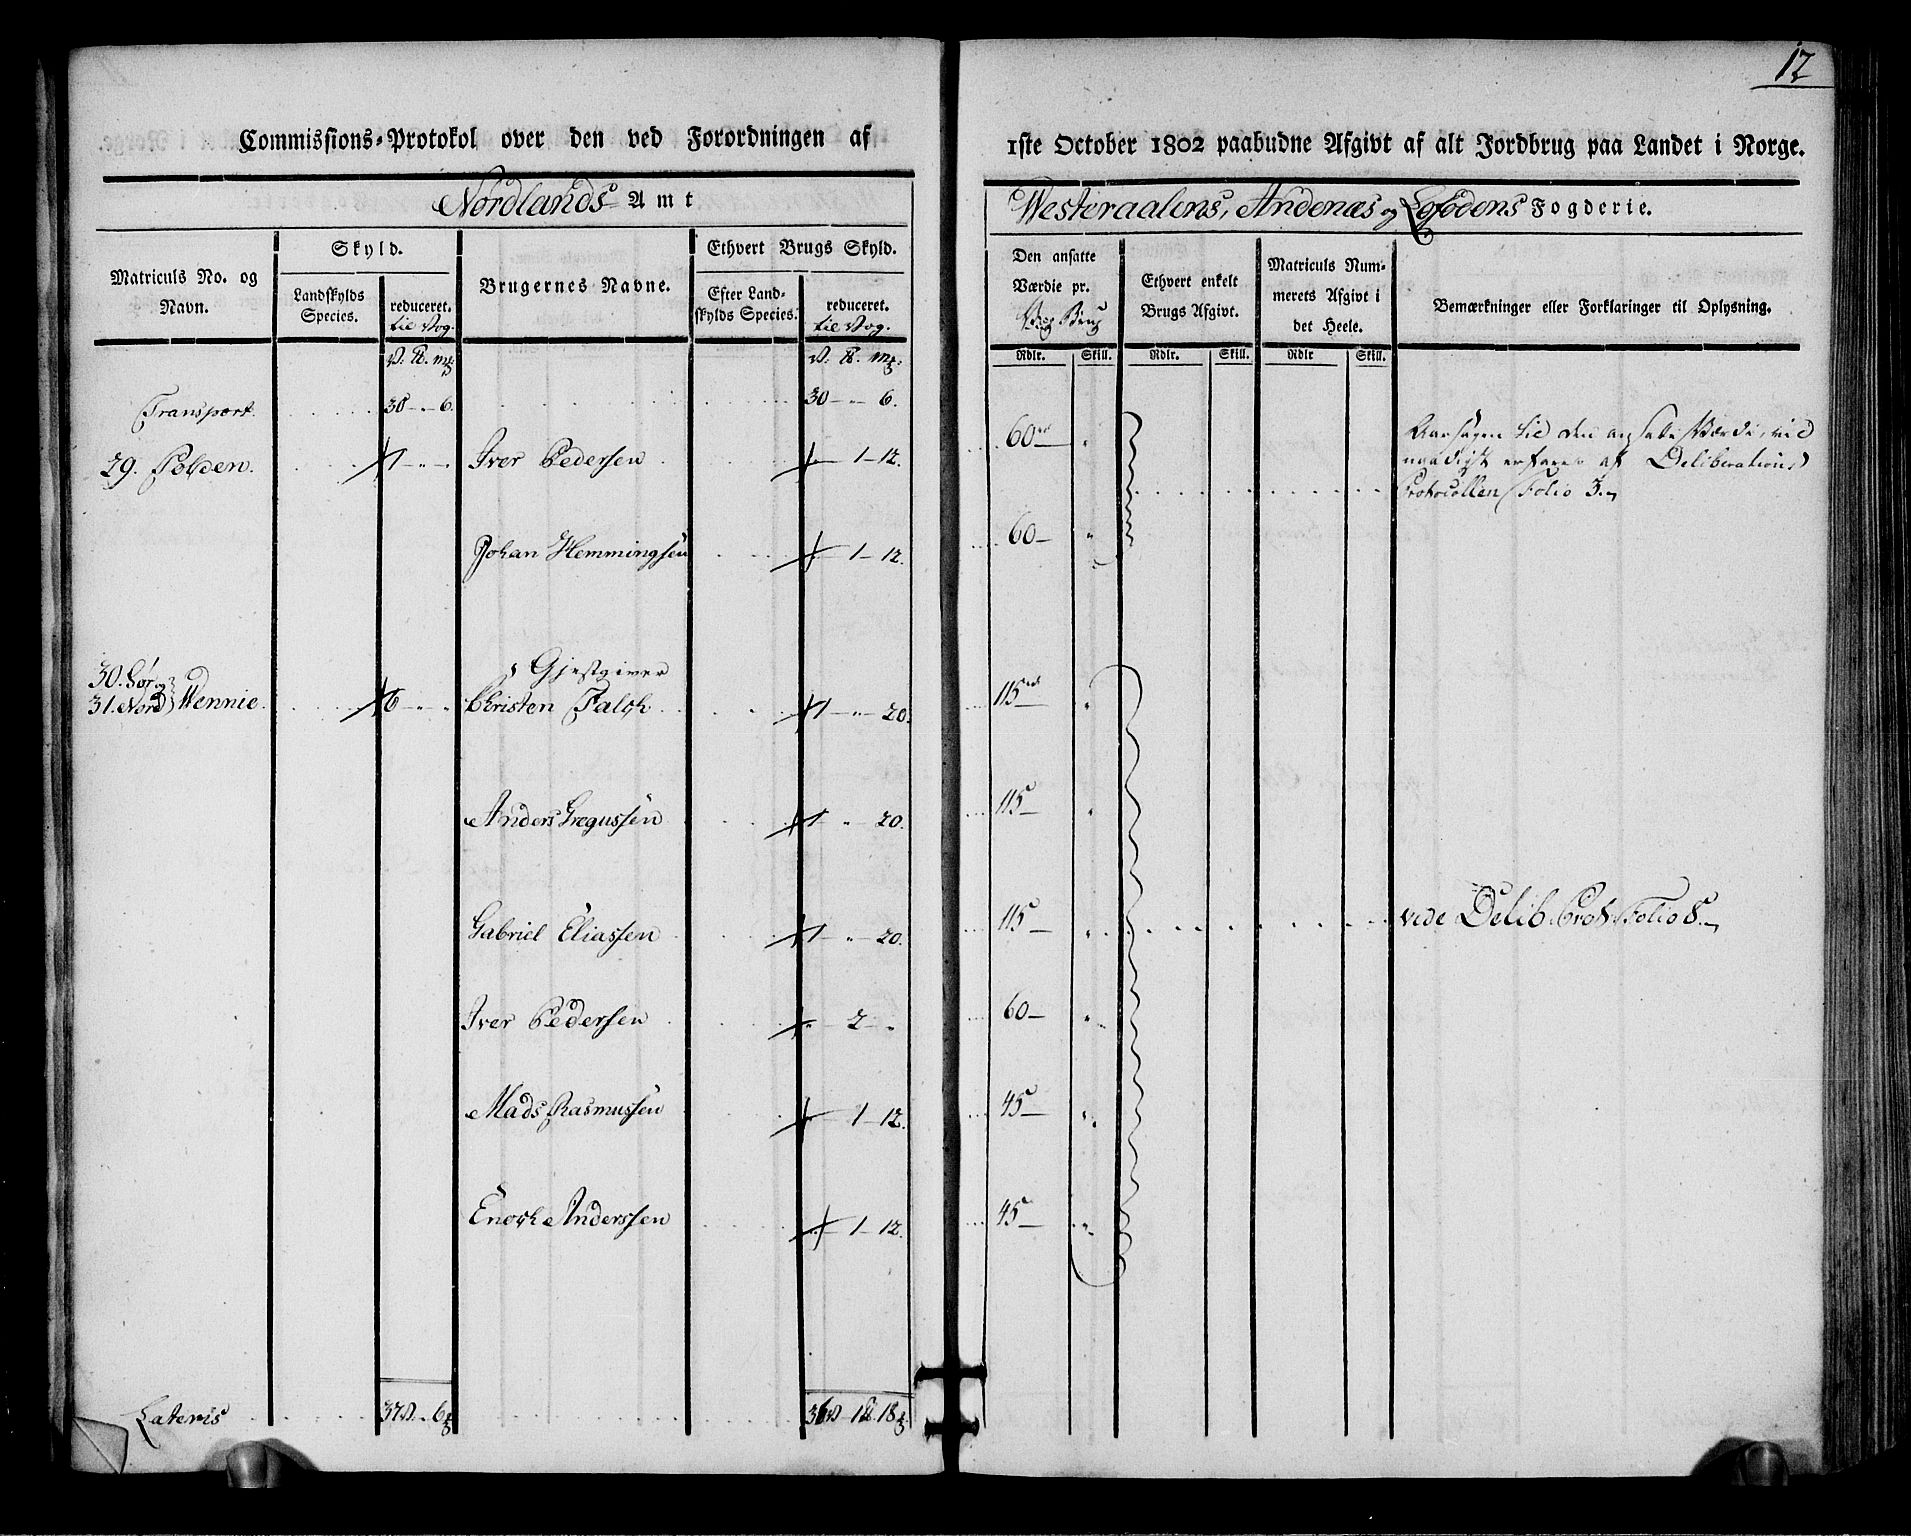 12
Commissions-Protokol over den ved Forordningen af 1ste October 1802 paabudne Afgivt af alt Jordbrug paa Landet i Norge.
Nordlands Amt
Westeraalens, Andenæs og Lofodens Fogderie.
Matriculs No. og Navn.
Skyld.
Landskylds Species.
reduceret.
til Vog.
Brugernes Navne.
Ethvert Brugs Skyld.
Efter Landskylds Species.
reduceret.
til Vog.
Den ansatte Værdie pr.
Brug
Ethvert enkelt Brugs Afgivt.
Matriculs Nummerets Afgivt i det Heele.
Bemærkninger eller Forklaringer til Oplysning.
Rdlr. Skill. Rdlr. Skill. Rdlr Skill.
Transport. 30 - " - 6. 30 - " - 6.
29. Polden. 1 - " - Iver Pedersen 1 - 12. 60 rd "
Aarsagen til den ansatte Værdie, vid
naadigst erfares af Deliberations
Protocollen Folio 3.
Johan Hemmingsen 1 - 12. 60 - "
30. Sør og
31. Nord Wennie. 6 - " -
Gjestgiver
Christen Falch 1 - " - 20. 115 rd "
Anders Gregussen 1 " - 20. 115 - "
Gabriel Eliassen 1 - " - 20. 115 - " vide Delib. Prot. Folio 8.
Iver Pedersen " - 2 - " 60 - "
Mads Rasmussen 1 - 12. 45 - "
Enoch Anderssen 1 - 12. 45 - "
Lateris 37 V - " 6 36 V - 1 18